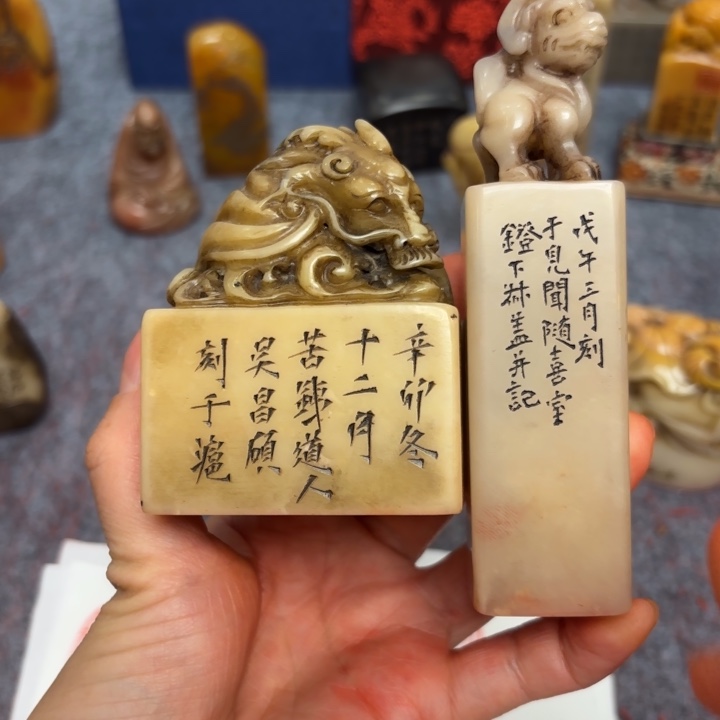 辛卯冬
十二月
苦銕道人
吴昌碩
刻于滬
戊午三月刻
于見聞隨喜室
鐙下尗盖并記